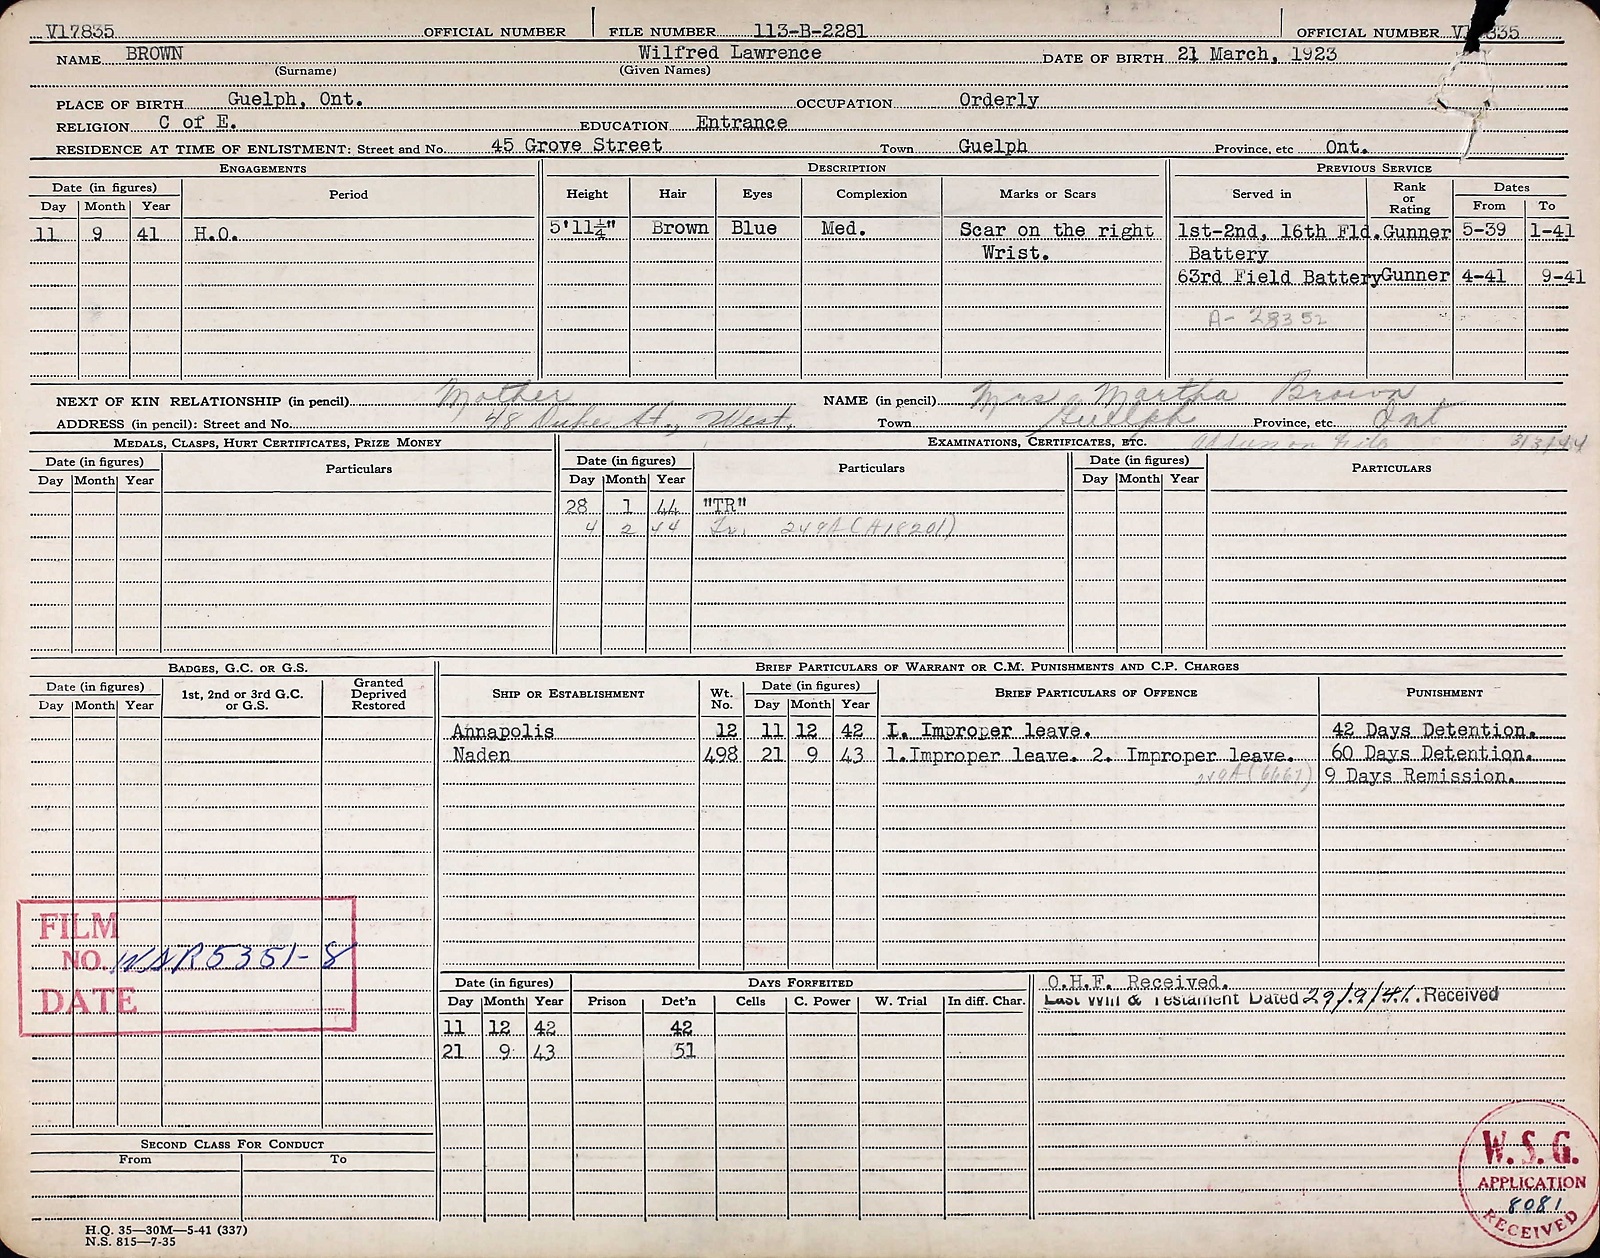 V17835 OFFICIAL NUMBER FILE NUMBER 113-B-2281 OFFICIAL NUMBER
NAME BROWN Wilfred Lawrence DATE OF BIRTH 21 March, 1923
(Surname) (Given Names)
PLACE OF BIRTH Guelph, Ont. OCCUPATION Orderly
RELIGION C of E. EDUCATION Entrance
RESIDENCE AT TIME OF ENLISTMENT: Street and No. 45 Grove Street Town Guelph Province, etc Ont.
ENGAGEMENTS DESCRIPTION PREVIOUS SERVICE
Date (in figures) Period Height Hair Eyes Complexion Marks or Scars Served in Rank or Rating Dates
Day Month Year From To
11 9 41 H.O. 5'11¼" Brown Blue Med. Scar on the right 1st-2nd, 16th Fld. Gunner 5-39 1-41
Wrist. Battery
63rd Field Battery Gunner 4-41 9-41
A- 28352
NEXT OF KIN RELATIONSHIP (in pencil) Mother NAME (in pencil) Mrs Martha Brown
ADDRESS (in pencil): Street and No. 48 Duke St., West. Town Guelph Province, etc. Ont
MEDALS, CLASPS, HURT CERTIFICATES, PRIZE MONEY EXAMINATIONS, CERTIFICATES, ETC. 3/3/44
Date (in figures) Particulars Date (in figures) Particulars Date (in figures) PARTICULARS
Day Month Year Day Month Year Day Month Year
28 1 44 "TR"
4 2 44 249A (A18201)
BADGES, G.C. OR G.S. BRIEF PARTICULARS OF WARRANT OR C.M. PUNISHMENTS AND C.P. CHARGES
Date (in figures) 1st, 2nd or 3rd G.C. or G.S. Granted Deprived Restored SHIP OR ESTABLISHMENT Wt. No. Date (in figures) BRIEF PARTICULARS OF OFFENCE PUNISHMENT
Day Month Year Day Month Year
Annapolis 12 11 12 42 1. Improper leave. 42 Days Detention.
Naden 498 21 9 43 1.Improper leave. 2. Improper leave. 60 Days Detention.
9 Days Remission.
FILM
NO. WSR5351-8
DATE
Date (in figures) DAYS FORFEITED O.H.F. Received.
Day Month Year Prison Det'n Cells C. Power W. Trial In diff. Char. Last Will & Testament Dated 29/9/41. Received
11 12 42 42
21 9 43 51
SECOND CLASS FOR CONDUCT
From To
W. S. G.
APPLICATION
8081
RECEIVED
H.Q. 35—30M—5-41 (337)
N.S. 815—7-35